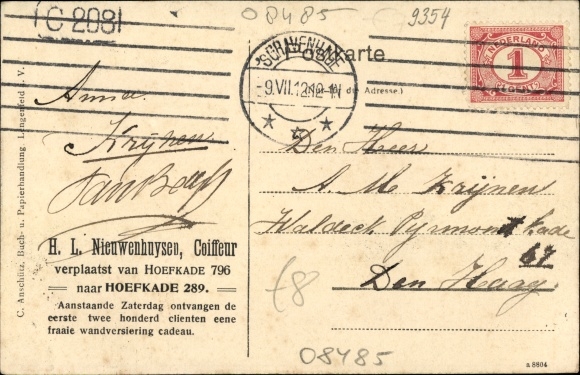 C 2081
08485
9354
Postkarte
'S-GRAVENHAGE
-9.VII.12.12-1N
NEDERLAND
1
CENT
Adresse.)
C. Anschütz, Buch- u. Papierhandlung, Lengenfeld i. V.
Anna
Krijnen
Den Heer
A. M. Krijnen
Waldeck Pyrmont kade
67
Den Haag
H. L. Nieuwenhuysen, Coiffeur
verplaatst van HOEFKADE 796
naar HOEFKADE 289.
Aanstaande Zaterdag ontvangen de
eerste twee honderd clienten eene
fraaie wandversiering cadeau.
£8
08485
a 8804